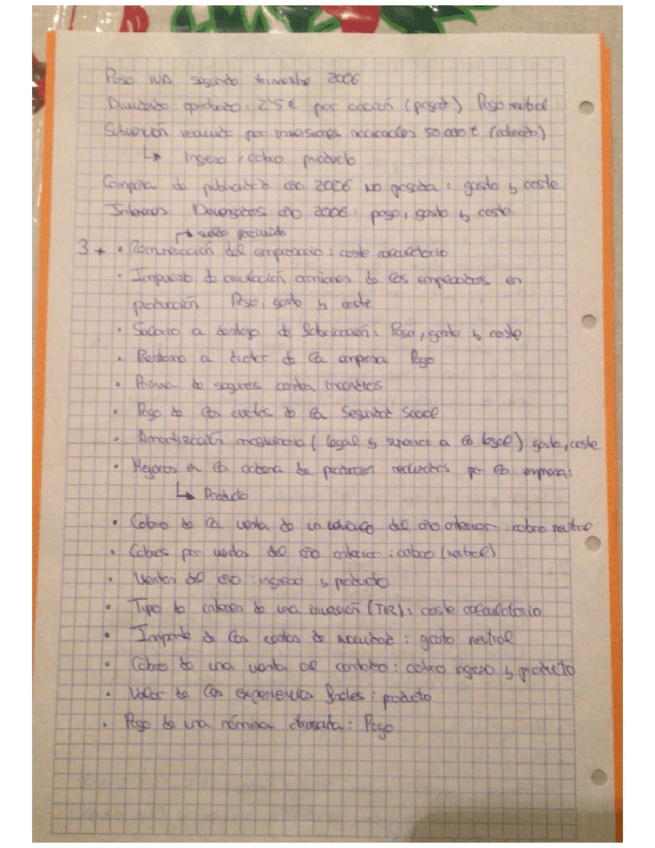 Pago IVA segundo trimestre 2006
Dividendo aprobado: 2'5 € por acción (pagar) Pago neutral
Subvención por inversiones 50.000 € (abono)
↳ Ingreso, cobro producto
Compra de publicidad año 2006 no pagada: gasto y coste
Intereses Devengados año 2006: pago, gasto y coste
3 • Remuneración del empresario: coste calculatorio
• Impuesto de circulación camiones de los en
producción Pago, gasto y coste
• Salario a destajo de fabricación: Pago, gasto y coste
• Préstamo a de la empresa Pago
• Prima de seguros contra incendios
• Pago de las cuotas de la Seguridad Social
• Amortización maquinaria (legal y superior a la legal) gasto, coste
• Mejoras en la cadena de producción realizadas por la empresa:
↳ Producto
• Cobro de la venta de un vehículo del año anterior: cobro neutral
• Cobros por ventas del año anterior: cobro (neutral)
• Ventas del año: ingreso y producto
• Tipo de interés de una inversión (TIR): coste calculatorio
• Importe de las de : gasto neutral
• Cobro de una venta al contado: cobro ingreso y producto
• Valor de las finales: producto
• Pago de una nómina atrasada: Pago